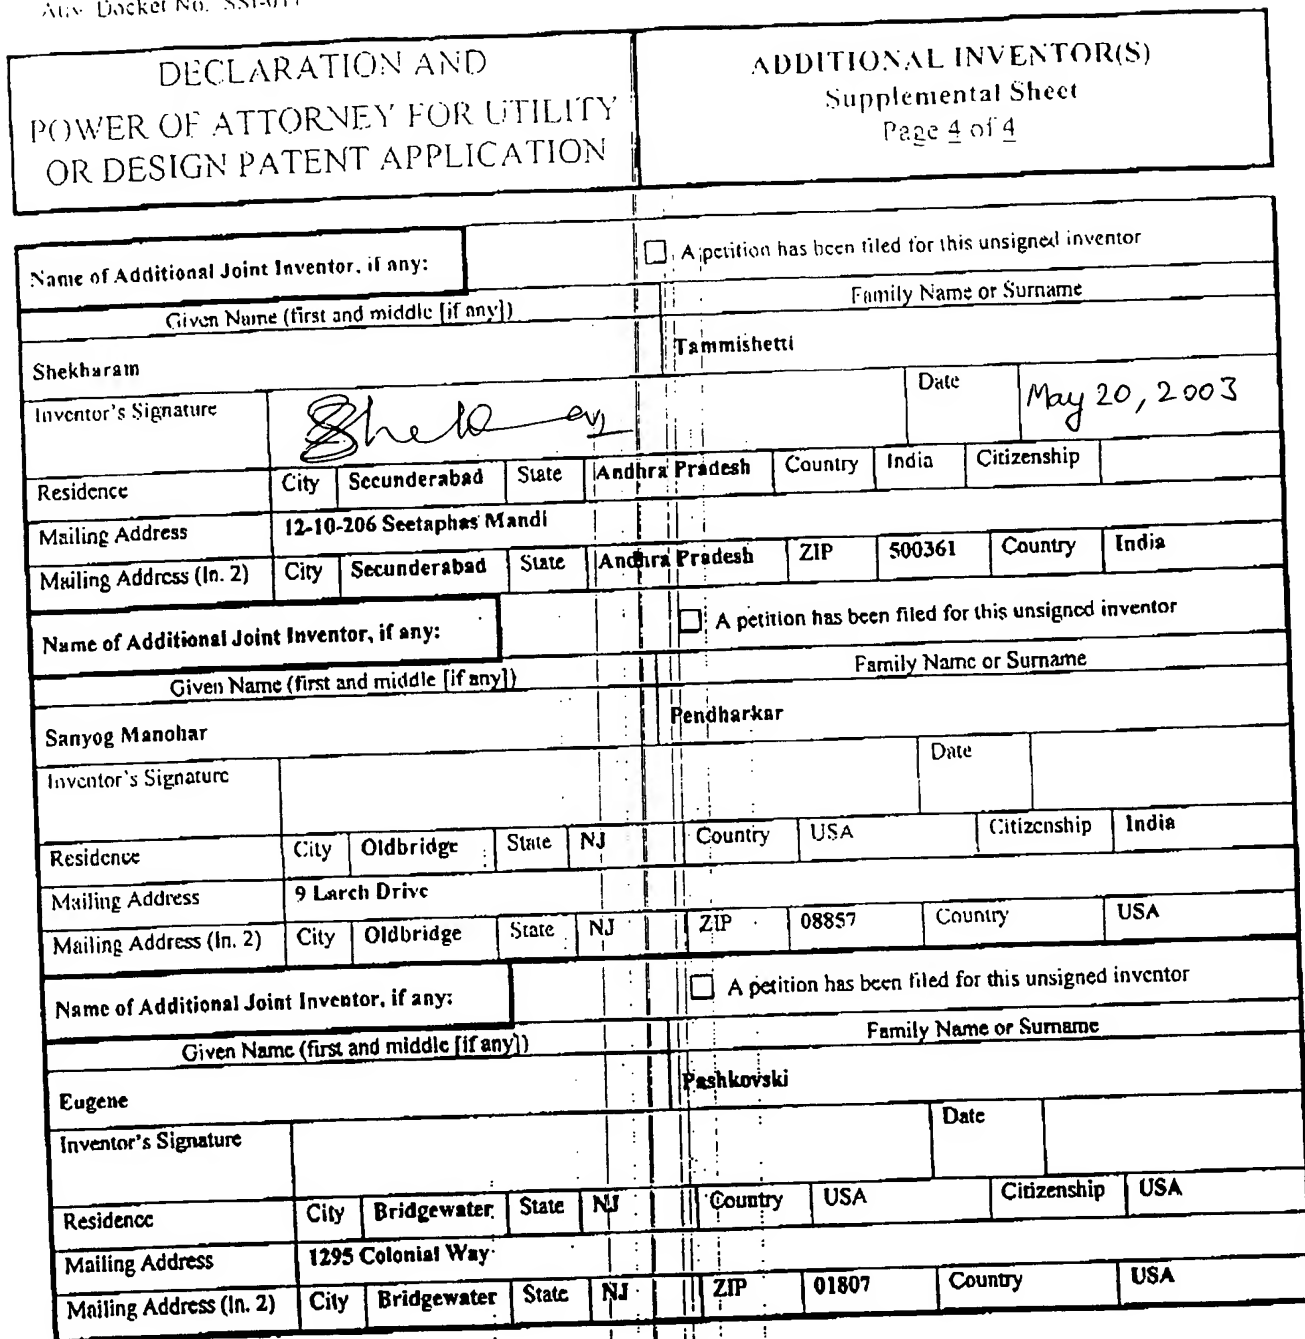 Docket No.
DECLARATION AND
POWER OF ATTORNEY FOR UTILITY
OR DESIGN PATENT APPLICATION
ADDITIONAL INVENTOR(S)
Supplemental Sheet
Page 4 of 4
Name of Additional Joint Inventor, if any:
A petition has been filed for this unsigned inventor
Given Name (first and middle [if any]) Family Name or Surname
Shekharam Tammishetti
Inventor's Signature Date May 20, 2003
Residence City Secunderabad State Andhra Pradesh Country India Citizenship
Mailing Address 12-10-206 Seetaphas Mandi
Mailing Address (ln. 2) City Secunderabad State Andhra Pradesh ZIP 500361 Country India
Name of Additional Joint Inventor, if any:
A petition has been filed for this unsigned inventor
Given Name (first and middle [if any]) Family Name or Surname
Sanyog Manohar Pendharkar
Inventor's Signature Date
Residence City Oldbridge State NJ Country USA Citizenship India
Mailing Address 9 Larch Drive
Mailing Address (ln. 2) City Oldbridge State NJ ZIP 08857 Country USA
Name of Additional Joint Inventor, if any:
A petition has been filed for this unsigned inventor
Given Name (first and middle [if any]) Family Name or Surname
Eugene Pashkovski
Inventor's Signature Date
Residence City Bridgewater State NJ Country USA Citizenship USA
Mailing Address 1295 Colonial Way
Mailing Address (ln. 2) City Bridgewater State NJ ZIP 01807 Country USA